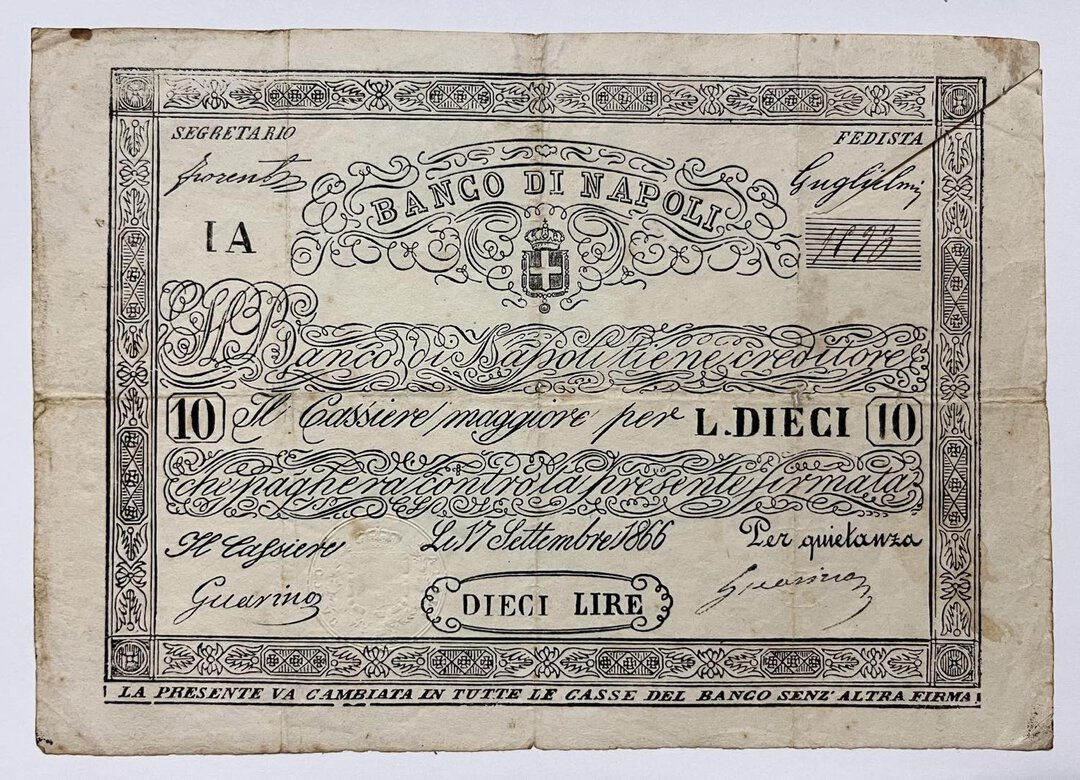 SEGRETARIO
FEDISTA
Guglielmi
BANCO DI NAPOLI
IA
Il Banco di Napoli tiene creditore
10 Il Cassiere maggiore per L. DIECI 10
che pagherà contro la presente firmata
Il Cassiere
Li 17 Settembre 1866
Per quietanza
Guarino
Guarino
DIECI LIRE
LA PRESENTE VA CAMBIATA IN TUTTE LE CASSE DEL BANCO SENZ'ALTRA FIRMA